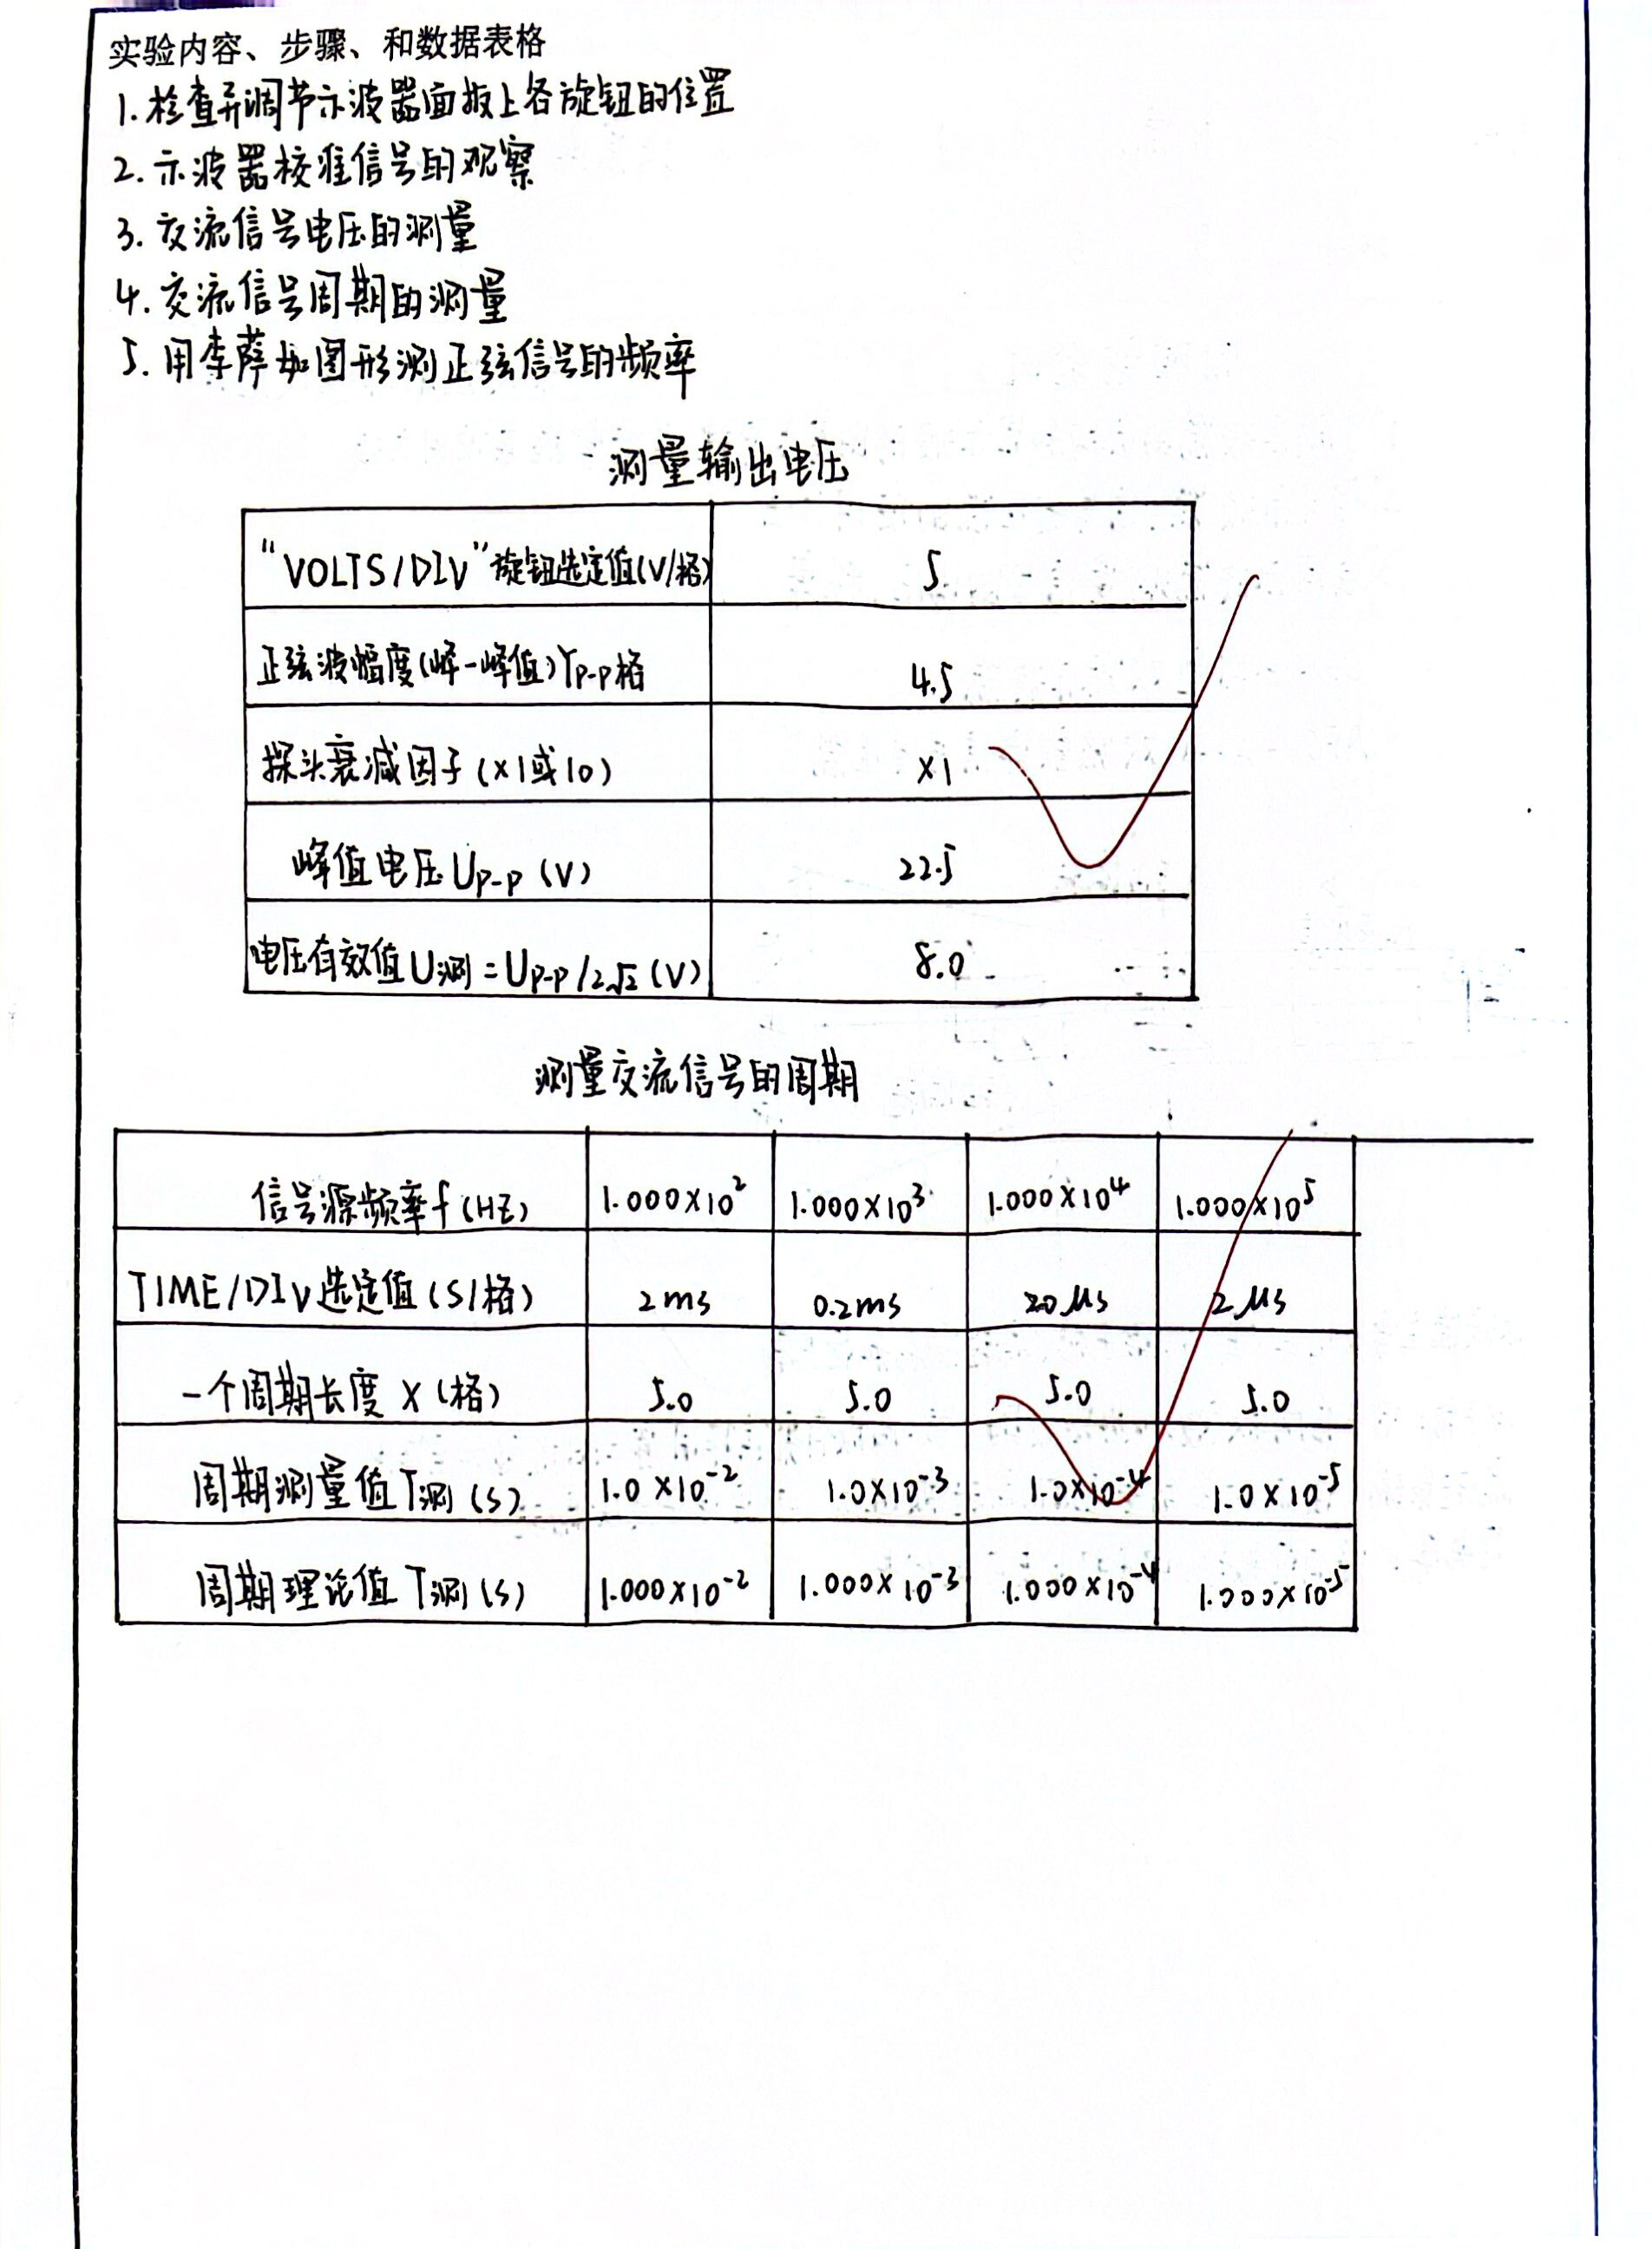 实验内容、步骤、和数据表格
1.检查并调节示波器面板上各旋钮的位置
2.示波器校准信号的观察
3.交流信号电压的测量
4.交流信号周期的测量
5.用李萨如图形测正弦信号的频率
测量输出电压
“VOLTS/DIV”旋钮选定值(V/格) 5
正弦波幅度(峰-峰值)Yp-p格 4.5
探头衰减因子(×1或10) ×1
峰值电压Up-p(V) 22.5
电压有效值U测=Up-p/2√2(V) 8.0
测量交流信号的周期
信号源频率f(HZ) 1.000×10² 1.000×10³ 1.000×10⁴ 1.000×10⁵
TIME/DIV选定值(S/格) 2ms 0.2ms 20μs 2μs
一个周期长度X(格) 5.0 5.0 5.0 5.0
周期测量值T测(s) 1.0×10⁻² 1.0×10⁻³ 1.0×10⁻⁴ 1.0×10⁻⁵
周期理论值T测(s) 1.000×10⁻² 1.000×10⁻³ 1.000×10⁻⁴ 1.000×10⁻⁵